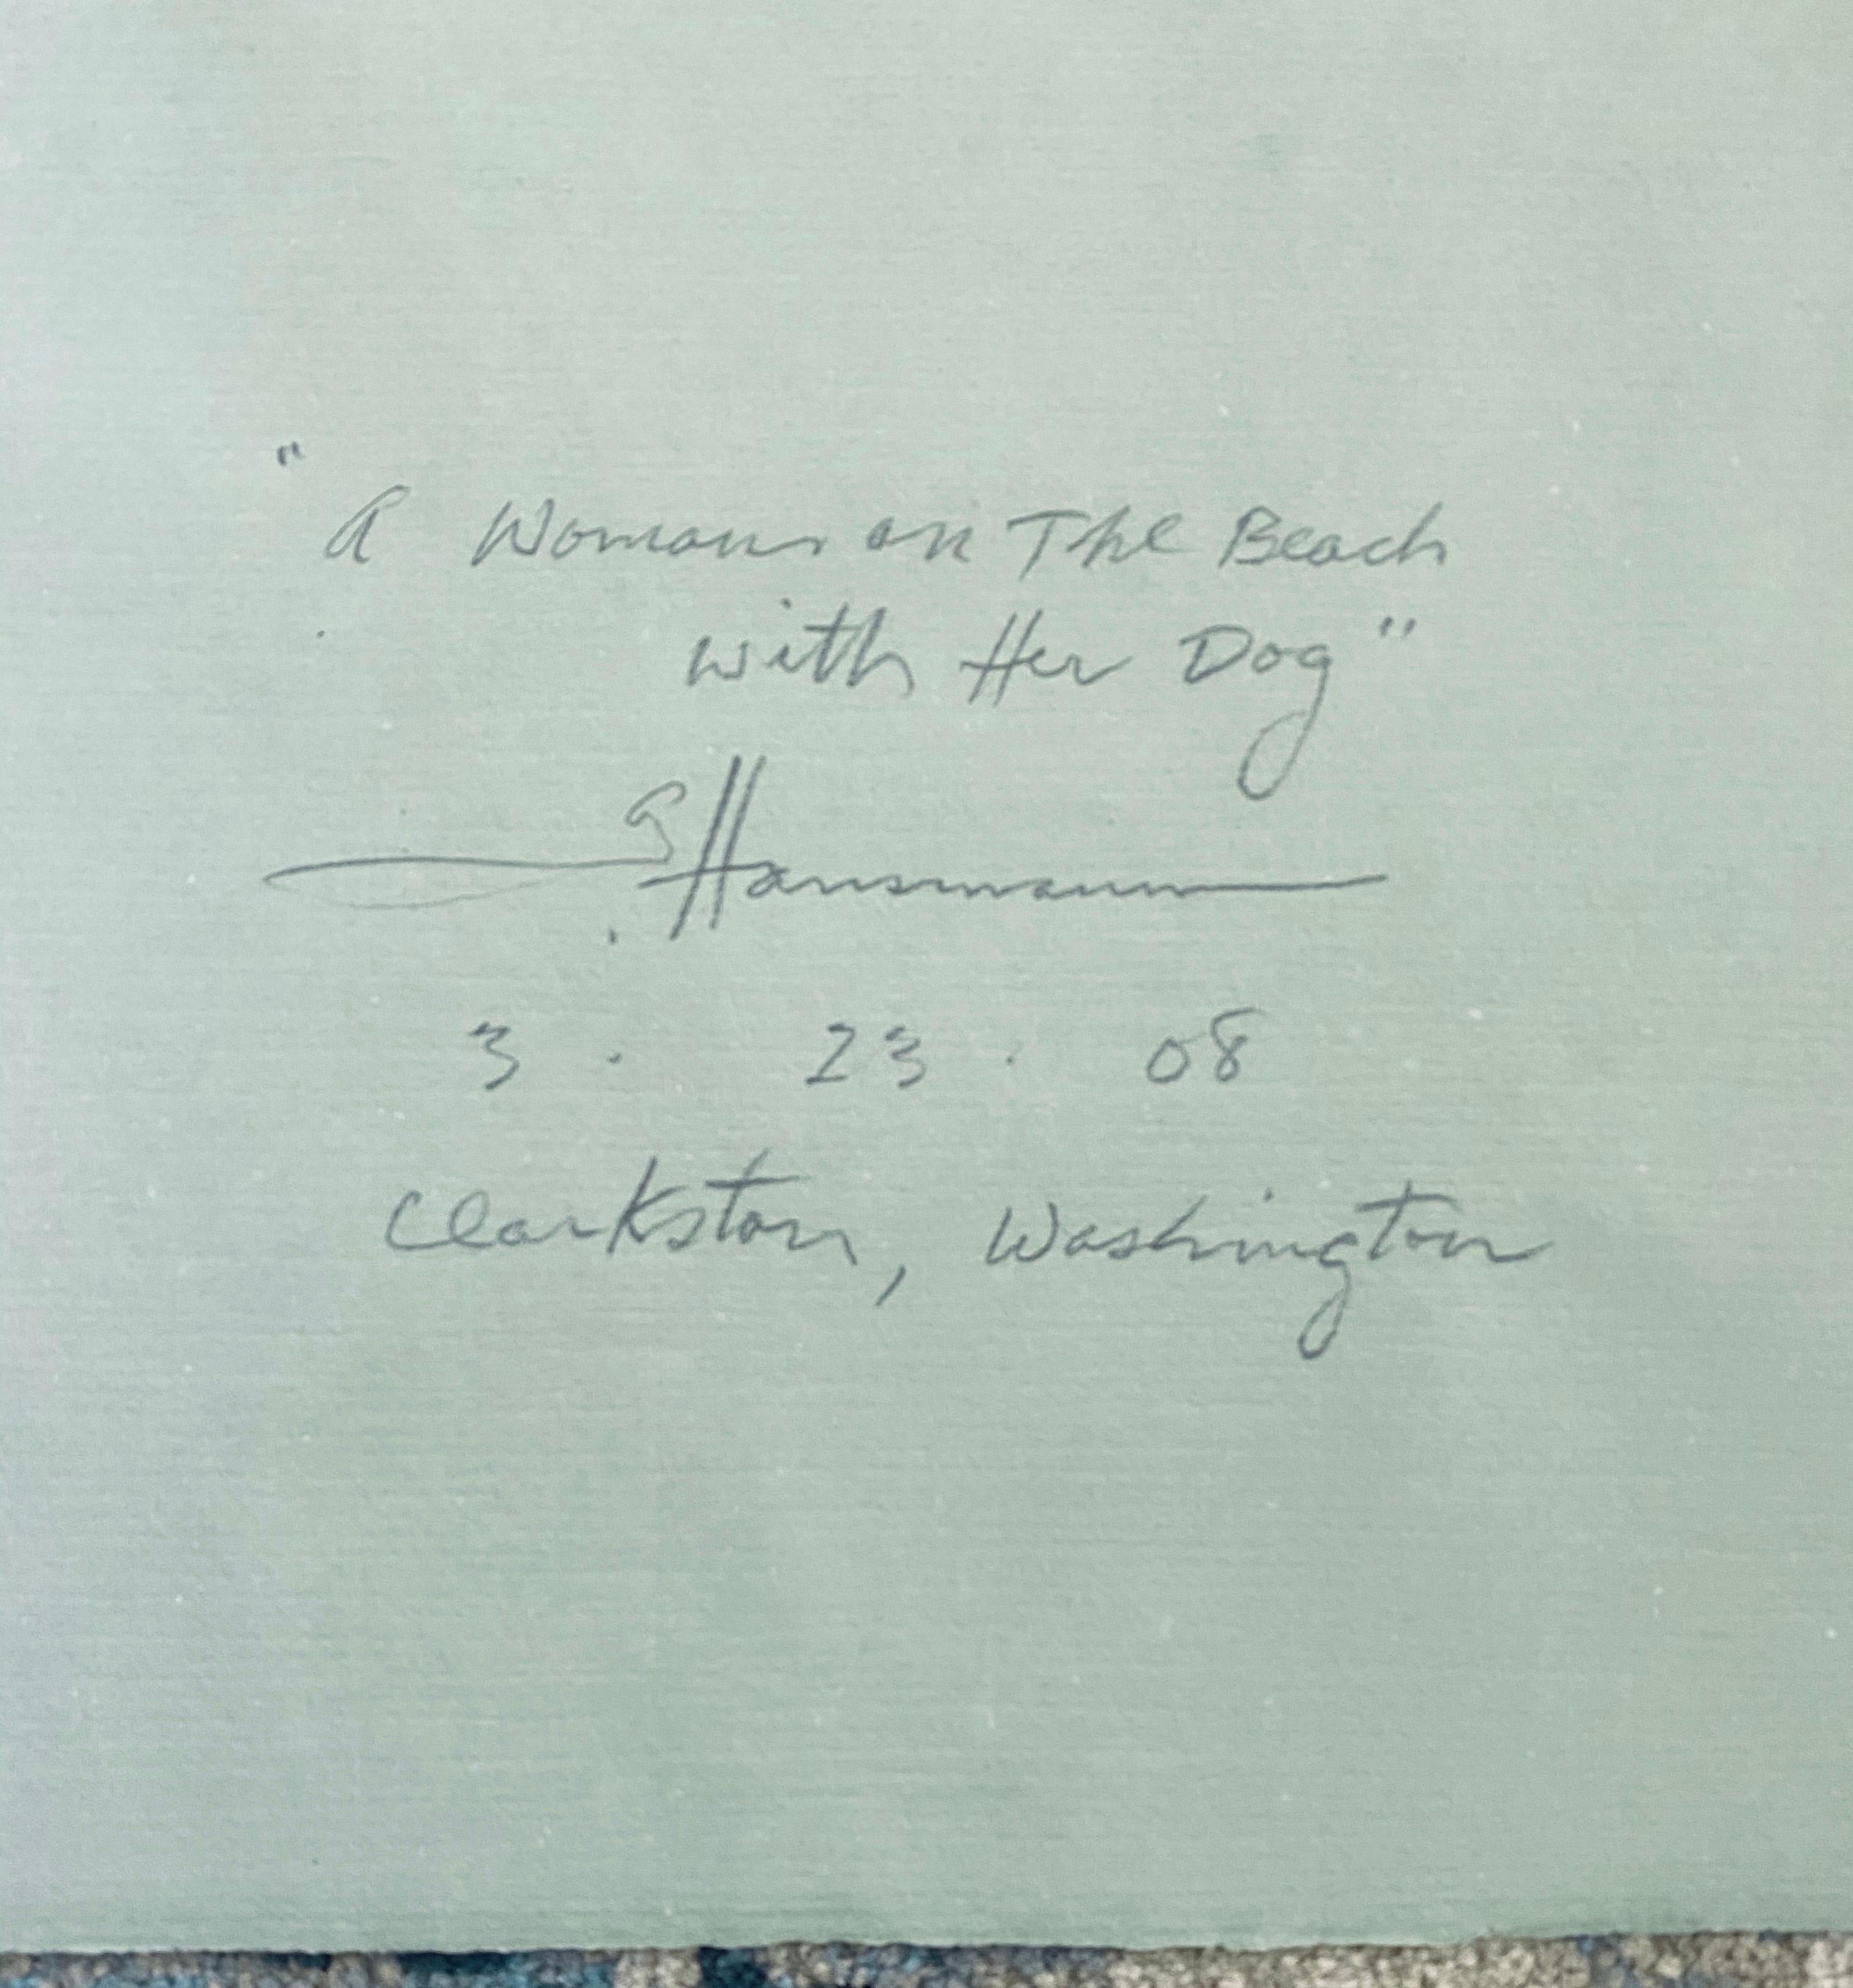 "A Woman on The Beach
with Her Dog"
G Hansmann
3 · 23 · 08
Clarkston, Washington